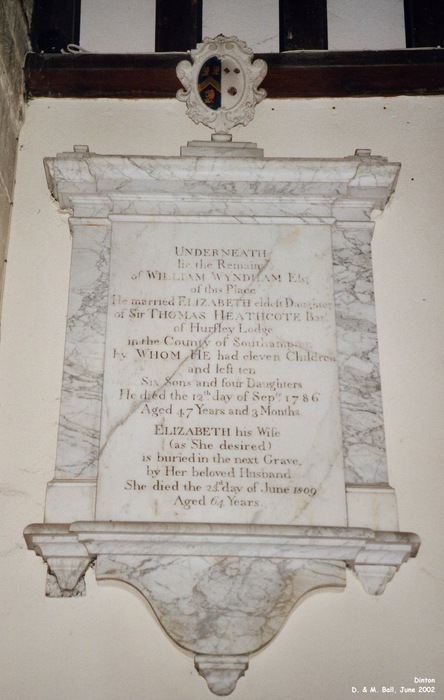 UNDERNEATH
lie the Remains
of WILLIAM WYNDHAM Esqr
of this Place
He married ELIZABETH eldest Daughter
of Sir THOMAS HEATHCOTE Bar
of Hursley Lodge
in the County of Southampton
by WHOM HE had eleven Children
and left ten
Six Sons and four Daughters
He died the 12th day of Sepr 1786
Aged 47 Years and 3 Months
ELIZABETH his Wife
(as She desired)
is buried in the next Grave,
by Her beloved Husband
She died the day of June 1809
Aged 64 Years.
Dinton
D. & M. Ball, June 2002